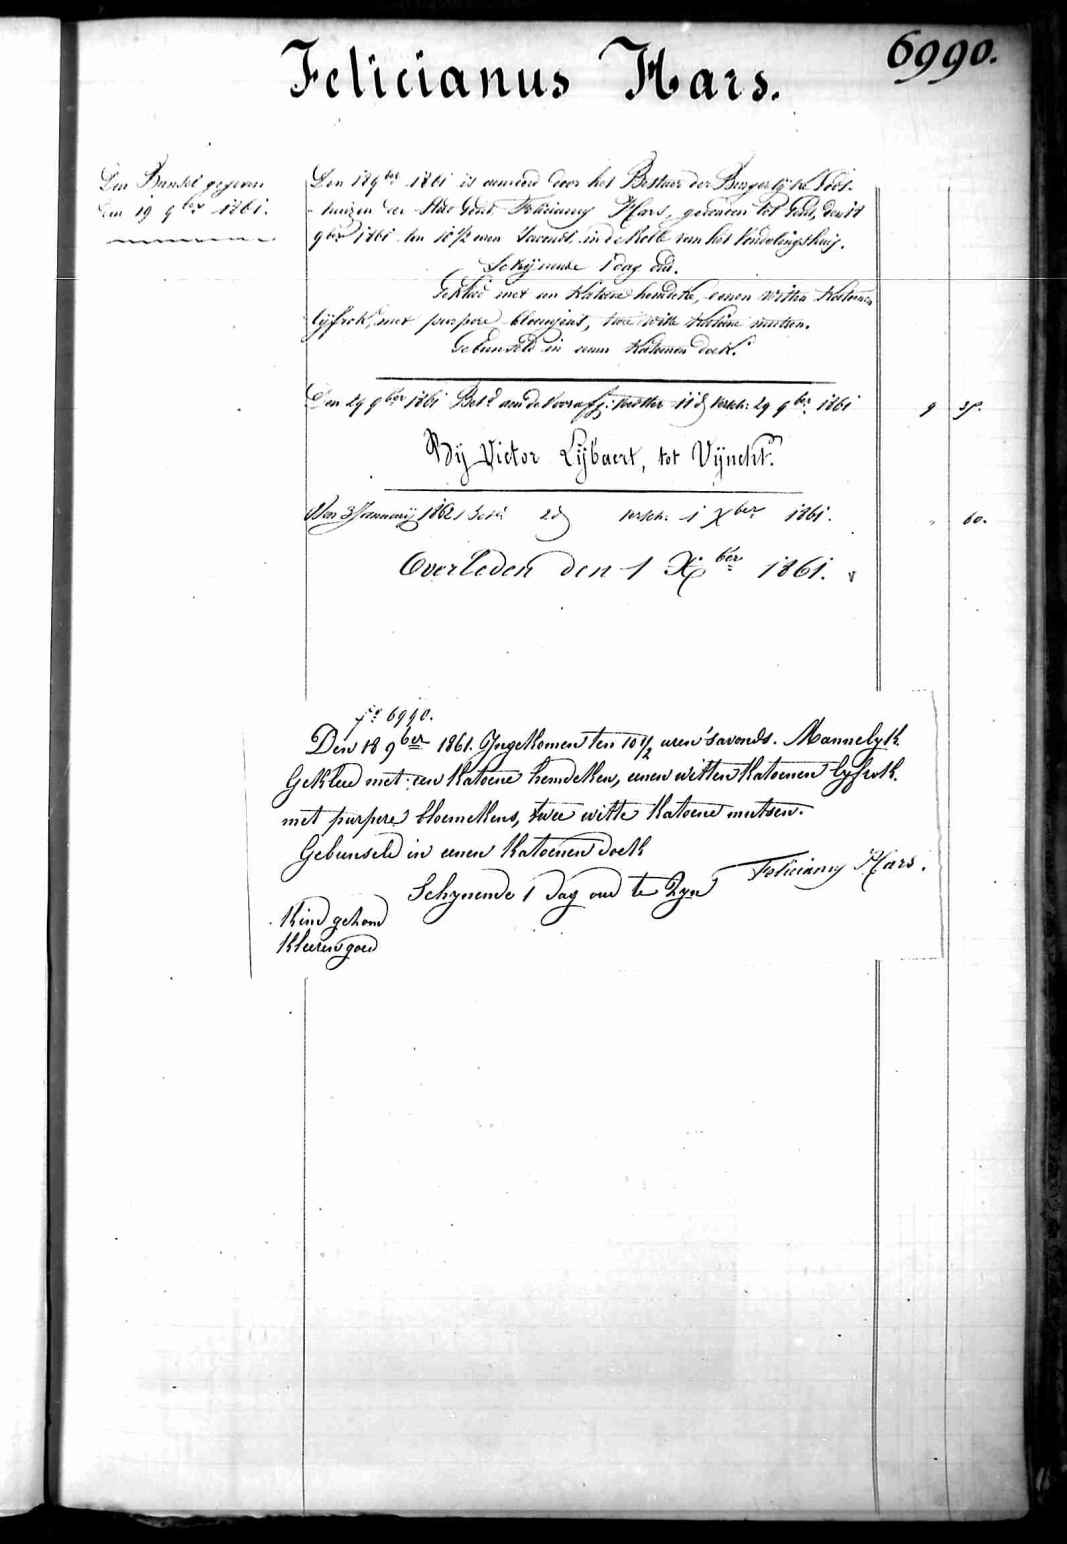 6990.
Felicianus Hars.
Den Bunsel gegeven
den 19 9ber 1861.
Den 18 9ber 1861 is aenveerd door het Bestuer der Burgerlijke Gods-
huizen der Stad Gend Felicianus Hars, gevonden tot Gend, den 18
9ber 1861 ten 10 1/2 uren 's avonds in de Rolle van het Vondelingshuis.
Schijnende 1 dag oud.
Gekleed met een Katoene hemdeke, eenen witten Katoenen
lijfrok, met purpere bloemjens, twee witte Katoene mutsen.
Gebunseld in eenen Katoenen doek.
Den 29 9ber 1861 Bet.d aen de Voorafg: Voedster 11 d versch: 29 9ber 1861 9
Bij Victor Lijbaert, tot Vijnckt.
Den 3 January 1862 Bet.d 2 d versch: 1 Xber 1861. " 60.
Overleden den 1 Xber 1861.
fo 6990.
Den 18 9ber 1861. Ingekomen ten 10 1/2 uren 's avonds. Mannelyk
Gekleed met een Katoene hemdeken, eenen witten Katoenen lyfrok
met purpere bloemekens, twee witte Katoene mutsen.
Gebunseld in eenen Katoenen doek
Schynende 1 dag oud te Zyn Felicianus Hars.
Kind gezond
Kleeren goed